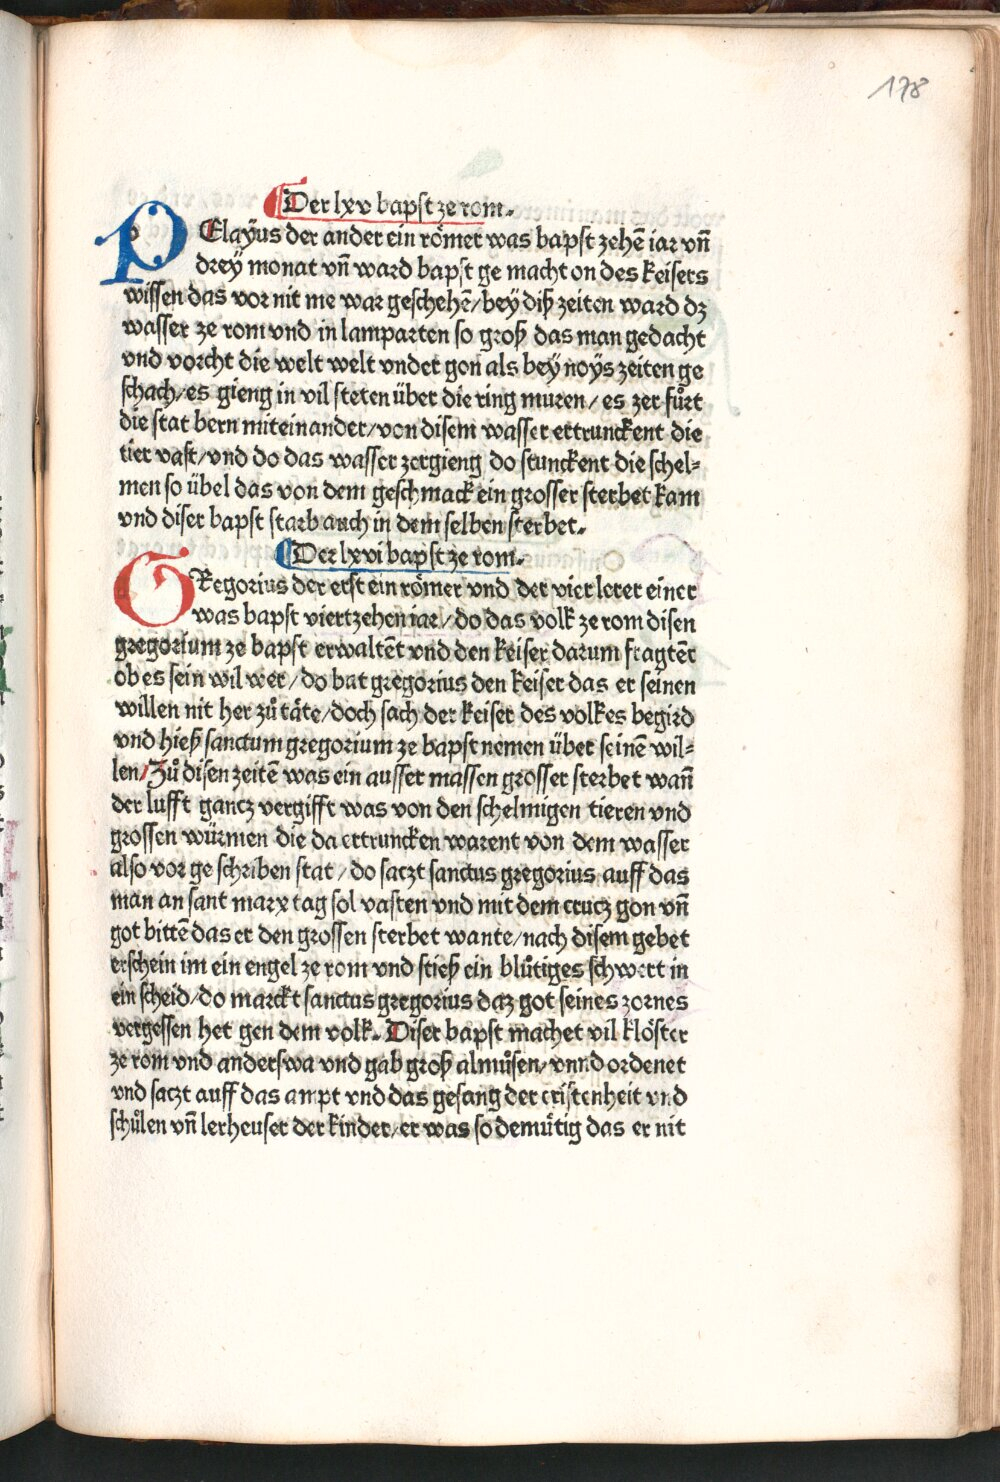 178
Der lxv bapst ze rom.
PElaÿus der ander ein römer was bapst zehē iar vn̄
dreÿ monat vn̄ ward bapst ge macht on des keisers
wissen das vor nit me war geschehē/beÿ diß zeiten ward dz
wasser ze rom vnd in lamparten so groß das man gedacht
vnd vorcht die welt welt vnder gon als beÿ noÿs zeiten ge
schach/es gieng in vil steten über die ring muren/es zer fůrt
die stat bern miteinander/von disem wasser ertrunckent die
tier vast/vnd do das wasser zergieng do stunckent die schel⸗
men so übel das von dem geschmack ein grosser sterbet kam
vnd diser bapst starb auch in dem selben sterbet.
Der lxvi bapst ze rom.
GRegorius der erst ein römer vnd der vier lerer einer
was bapst viertzehen iar/do das volk ze rom disen
gregorium ze bapst erwaltēt vnd den keiser darum fragtēt
ob es sein wil wer/do bat gregorius den keiser das er seinen
willen nit her zů täte/doch sach der keiser des volkes begird
vnd hieß sanctum gregorium ze bapst nemen über seinē wil⸗
len/Zů disen zeitē was ein ausser massen grosser sterbet wan̄
der lufft gancz vergifft was von den schelmigen tieren vnd
grossen würmen die da ertruncken warent von dem wasser
also vor ge schriben stat/do saczt sanctus gregorius auff das
man an sant marx tag sol vasten vnd mit dem crucz gon vn̄
got bittē das er den grossen sterbet wante/nach disem gebet
erschein im ein engel ze rom vnd stieß ein blůtiges schwert in
ein scheid/do marckt sanctus gregorius daz got seines zornes
vergessen het gen dem volk. Diser bapst machet vil klöster
ze rom vnd anderswa vnd gab groß almůsen/vnnd ordenet
vnd saczt auff das ampt vnd das gesang der cristenheit vnd
schůlen vn̄ lerheuser der kinder/er was so demütig das er nit